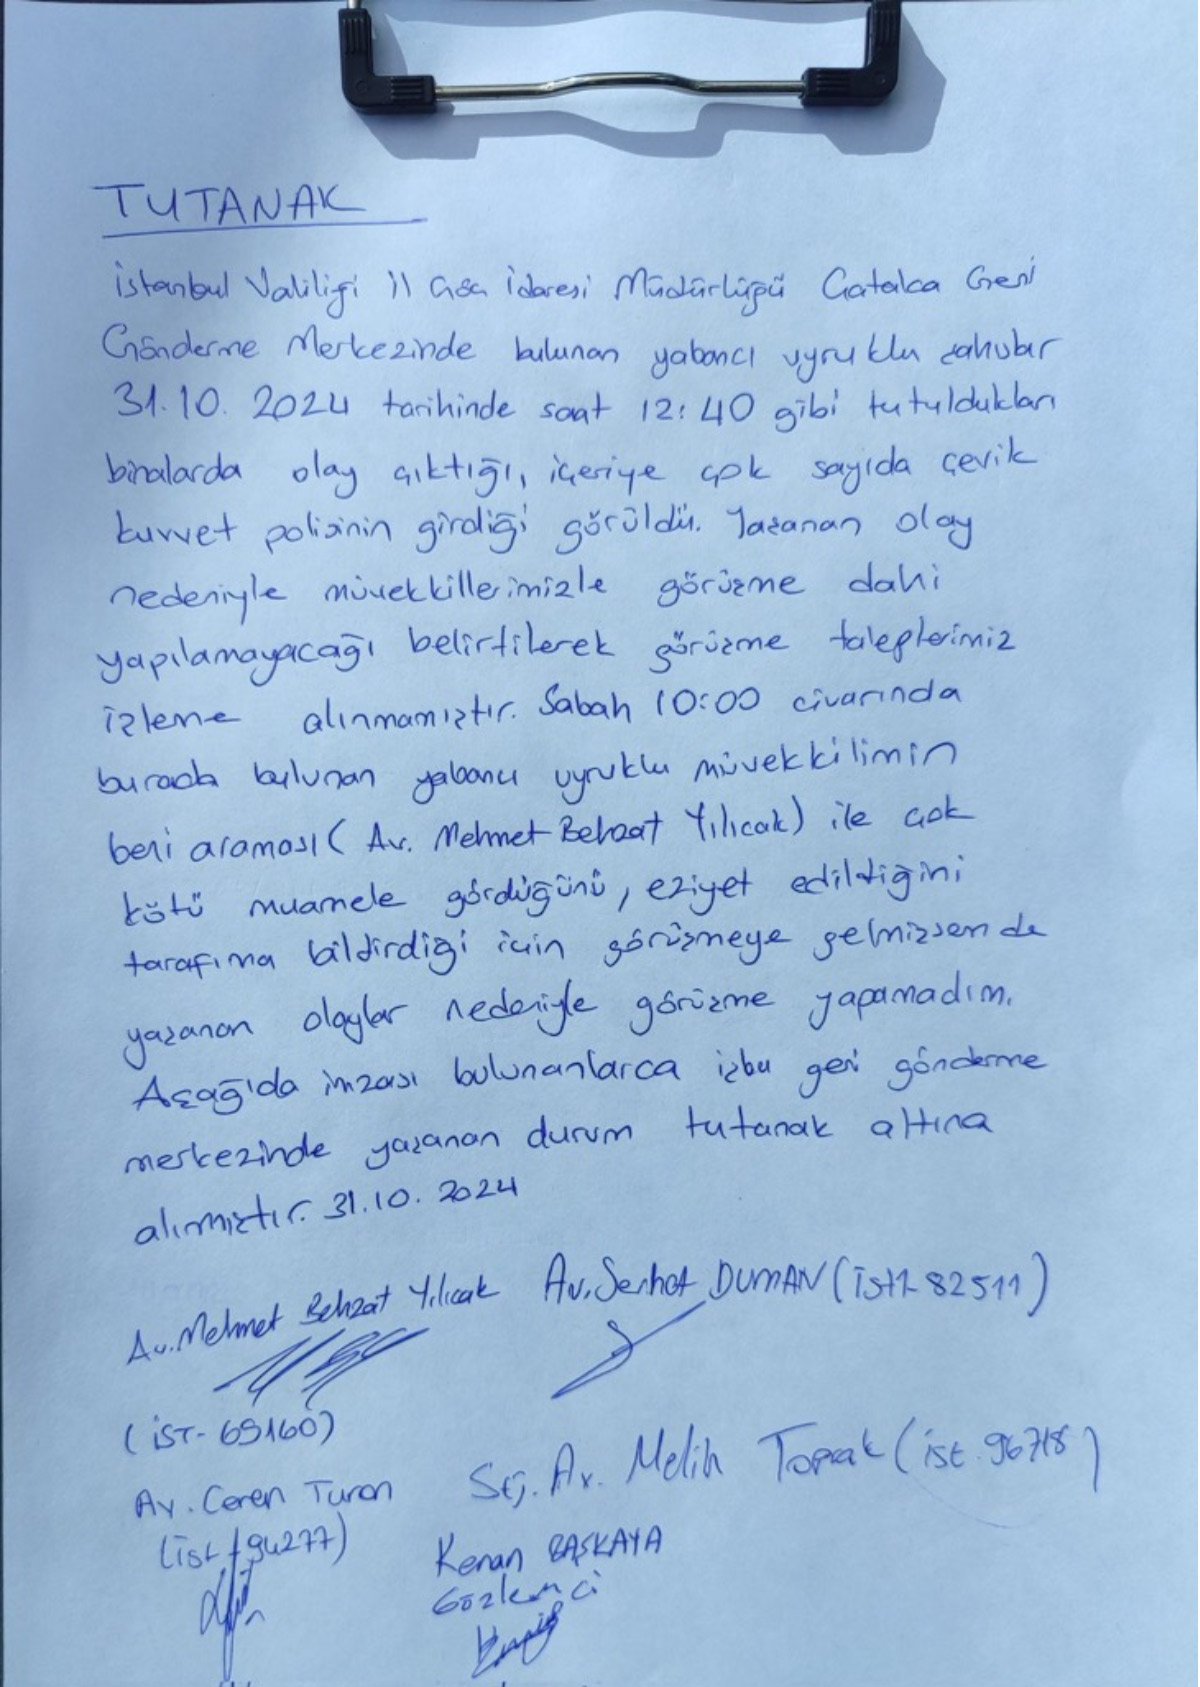 TUTANAK
İstanbul Valiliği İl Göç İdaresi Müdürlüğü Çatalca Geri
Gönderme Merkezinde bulunan yabancı uyruklu şahıslar
31.10.2024 tarihinde saat 12:40 gibi tutuldukları
binalarda olay çıktığı, içeriye çok sayıda çevik
kuvvet polisinin girdiği görüldü. Yaşanan olay
nedeniyle müvekkillerimizle görüşme dahi
yapılamayacağı belirtilerek görüşme taleplerimiz
işleme alınmamıştır. Sabah 10:00 civarında
burada bulunan yabancı uyruklu müvekkilimin
beni araması (Av. Mehmet Behzat Yılıcak) ile çok
kötü muamele gördüğünü, eziyet edildiğini
tarafıma bildirdiği için görüşmeye gelmişsem de
yaşanan olaylar nedeniyle görüşme yapamadım.
Aşağıda imzası bulunanlarca işbu geri gönderme
merkezinde yaşanan durum tutanak altına
alınmıştır. 31.10.2024
Av. Mehmet Behzat Yılıcak Av. Serhat DUMAN (İst 82511)
(İST- 69160)
Av. Ceren Turan Stj. Av. Melih Toprak (ist. 96718)
(İst / 94277)
Kenan BAŞKAYA
Gözlemci